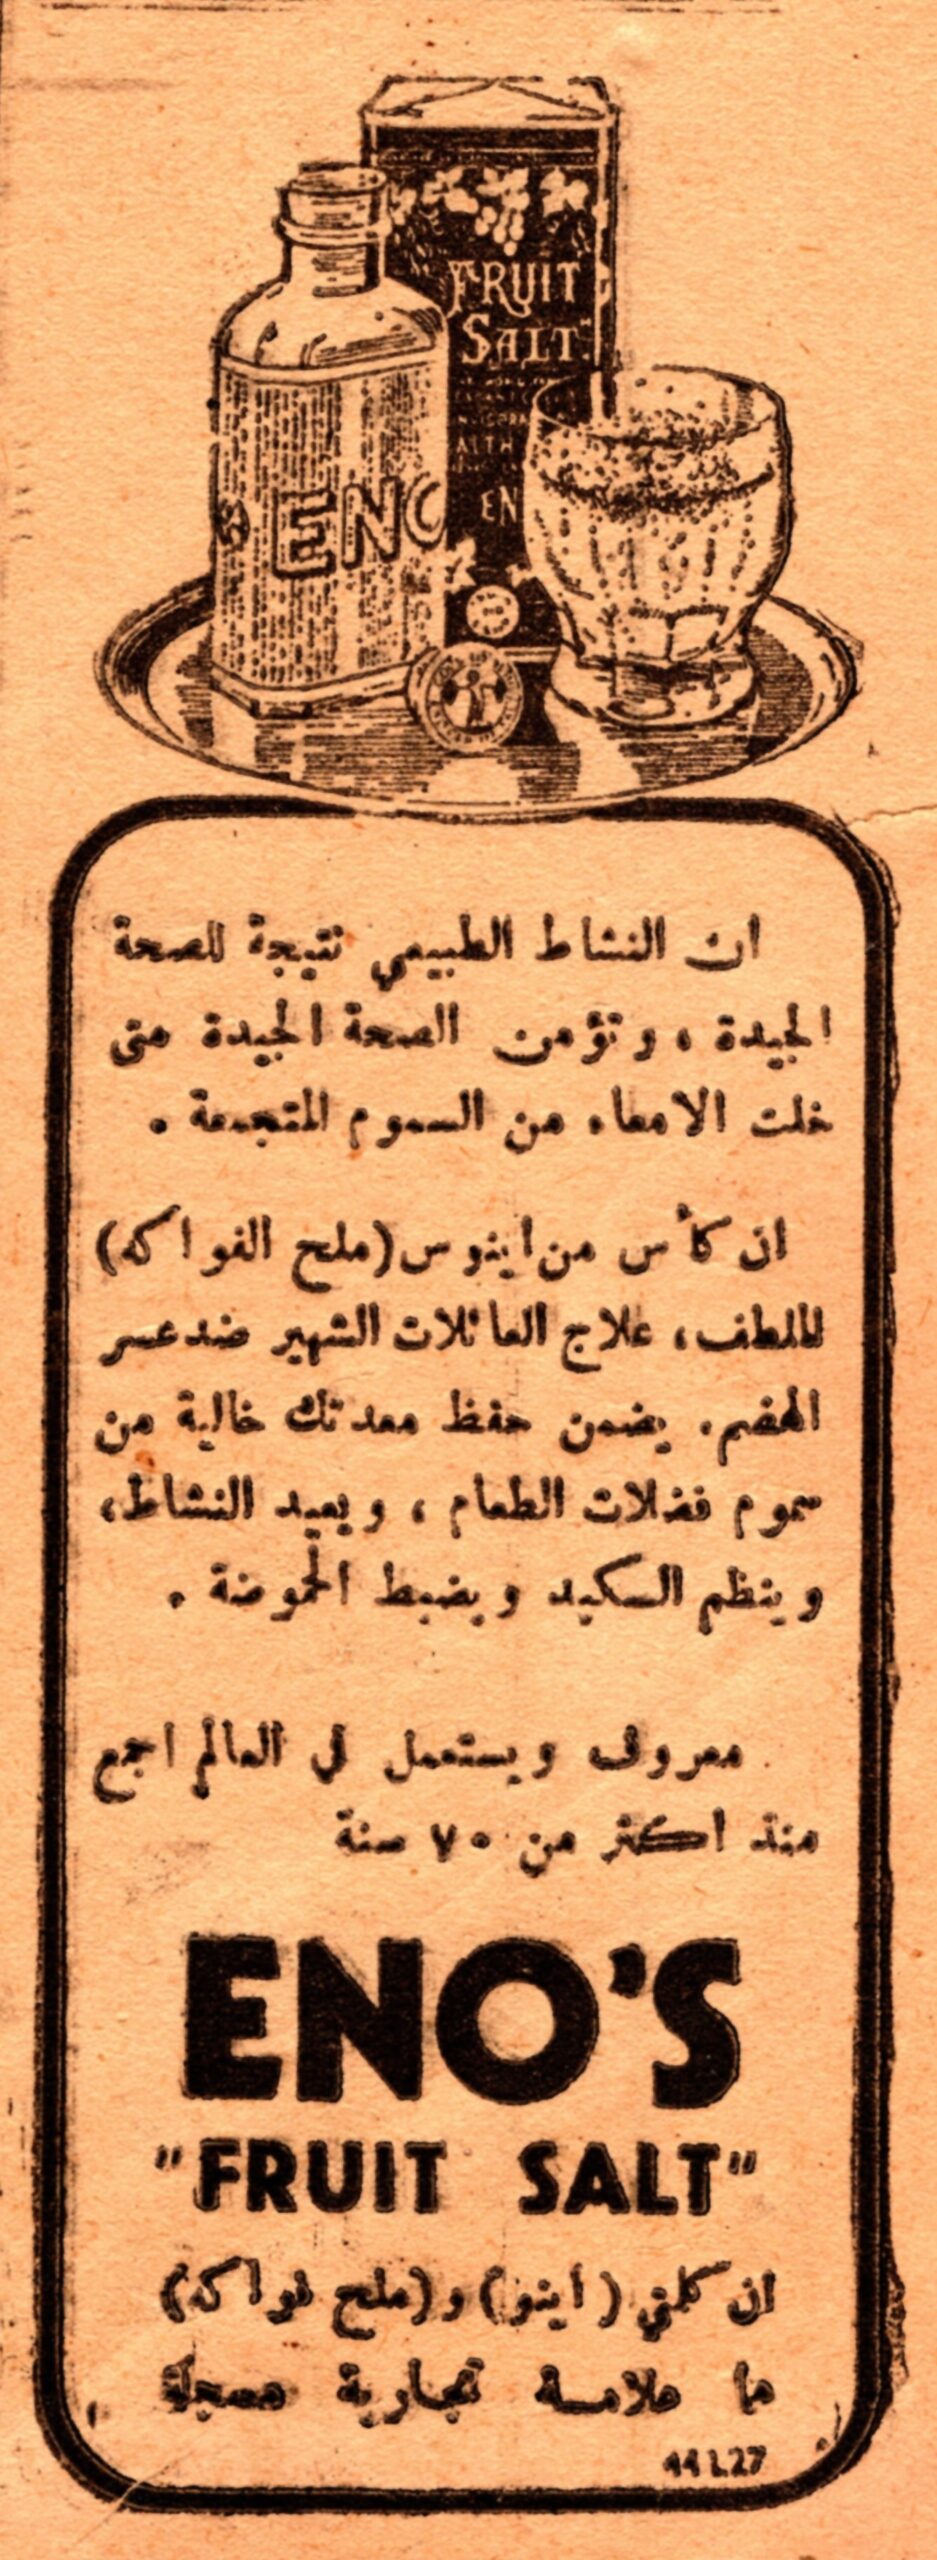 "FRUIT
SALT".
ENO
EN
ان النشاط الطبيعي نتيجة للصحة
الجيدة ، وتؤمن الصحة الجيدة متى
خلت الامعاء من السموم المتجمعة .
ان كأس من اينوس (ملح الفواكه)
الملطف، علاج العائلات الشهير ضد عسر
الهضم. يضمن حفظ معدتك خالية من
سموم فضلات الطعام ، ويعيد النشاط،
وينظم الكبد ويضبط الحموضة .
معروف ويستعمل في العالم اجمع
منذ اكثر من ٧٠ سنة
ENO'S
"FRUIT SALT"
ان كلمتي (اينو) و(ملح فواكه)
هما علامة تجارية مسجلة
44 L27